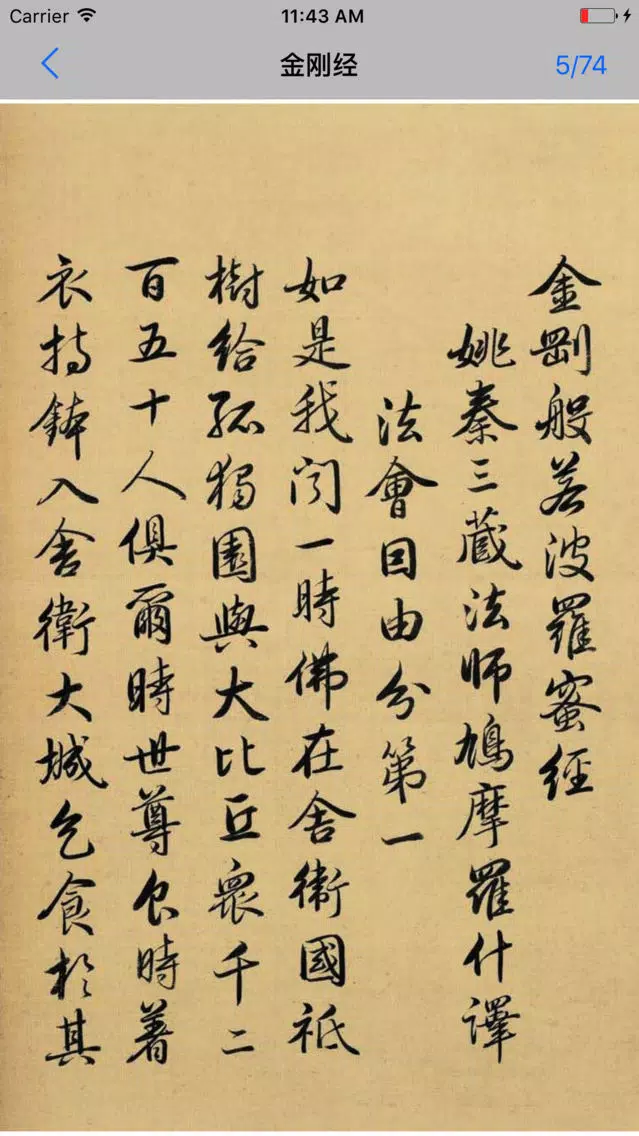 Carrier 11:43 AM
金刚经 5/74
金剛般若波羅蜜經
姚秦三藏法師鳩摩羅什譯
法會因由分第一
如是我聞一時佛在舍衛國祇
樹給孤獨園與大比丘眾千二
百五十人俱爾時世尊食時著
衣持鉢入舍衛大城乞食於其